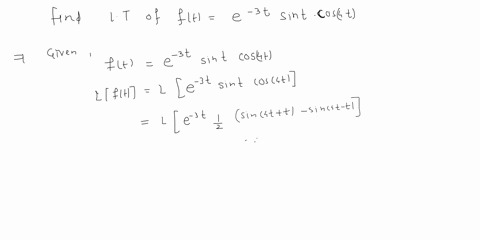 find L.T of f(t) = e^{-3t} sint cos(5t)
⇒ Given, f(t) = e^{-3t} sint cos(5t)
L[f(t)] = L[e^{-3t} sint cos(5t)]
= L[e^{-3t} 1/2 (sin(5t+t) - sin(5t-t)]